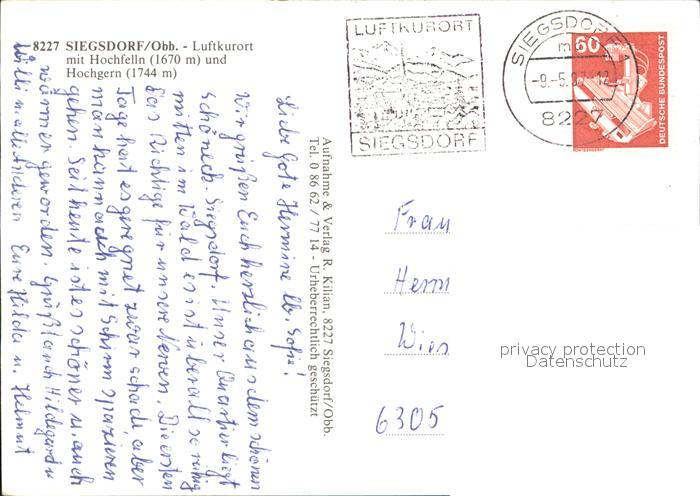 8227 SIEGSDORF/Obb. - Luftkurort
mit Hochfelln (1670 m) und
Hochgern (1744 m)
LUFTKURORT
SIEGSDORF
SIEGSDORF
-9.-5.8
8227
60
DEUTSCHE BUNDESPOST
Aufnahme & Verlag R. Kilian, 8227 Siegsdorf/Obb.
Tel. 0 86 62 / 77 14 - Urheberrechtlich geschützt
Liebe Gote Hermine lb. Sofie!
Wir grüßen Euch herzlich aus dem schönen
Schöneck-Siegsdorf. Unser Quartier liegt
mitten im Wald es ist überall so ruhig
das Richtige für unsere Nerven. Die ersten
Tage hat es geregnet zwar schade, aber
man kann auch mit Schirm spazieren
gehen. Seit heute ist es schöner u. auch
wärmer geworden. Grüßt auch Hildegard u
Willi u. alle anderen Eure Hilda u. Helmut
Frau
Herm
Wies
6305
privacy protection
Datenschutz